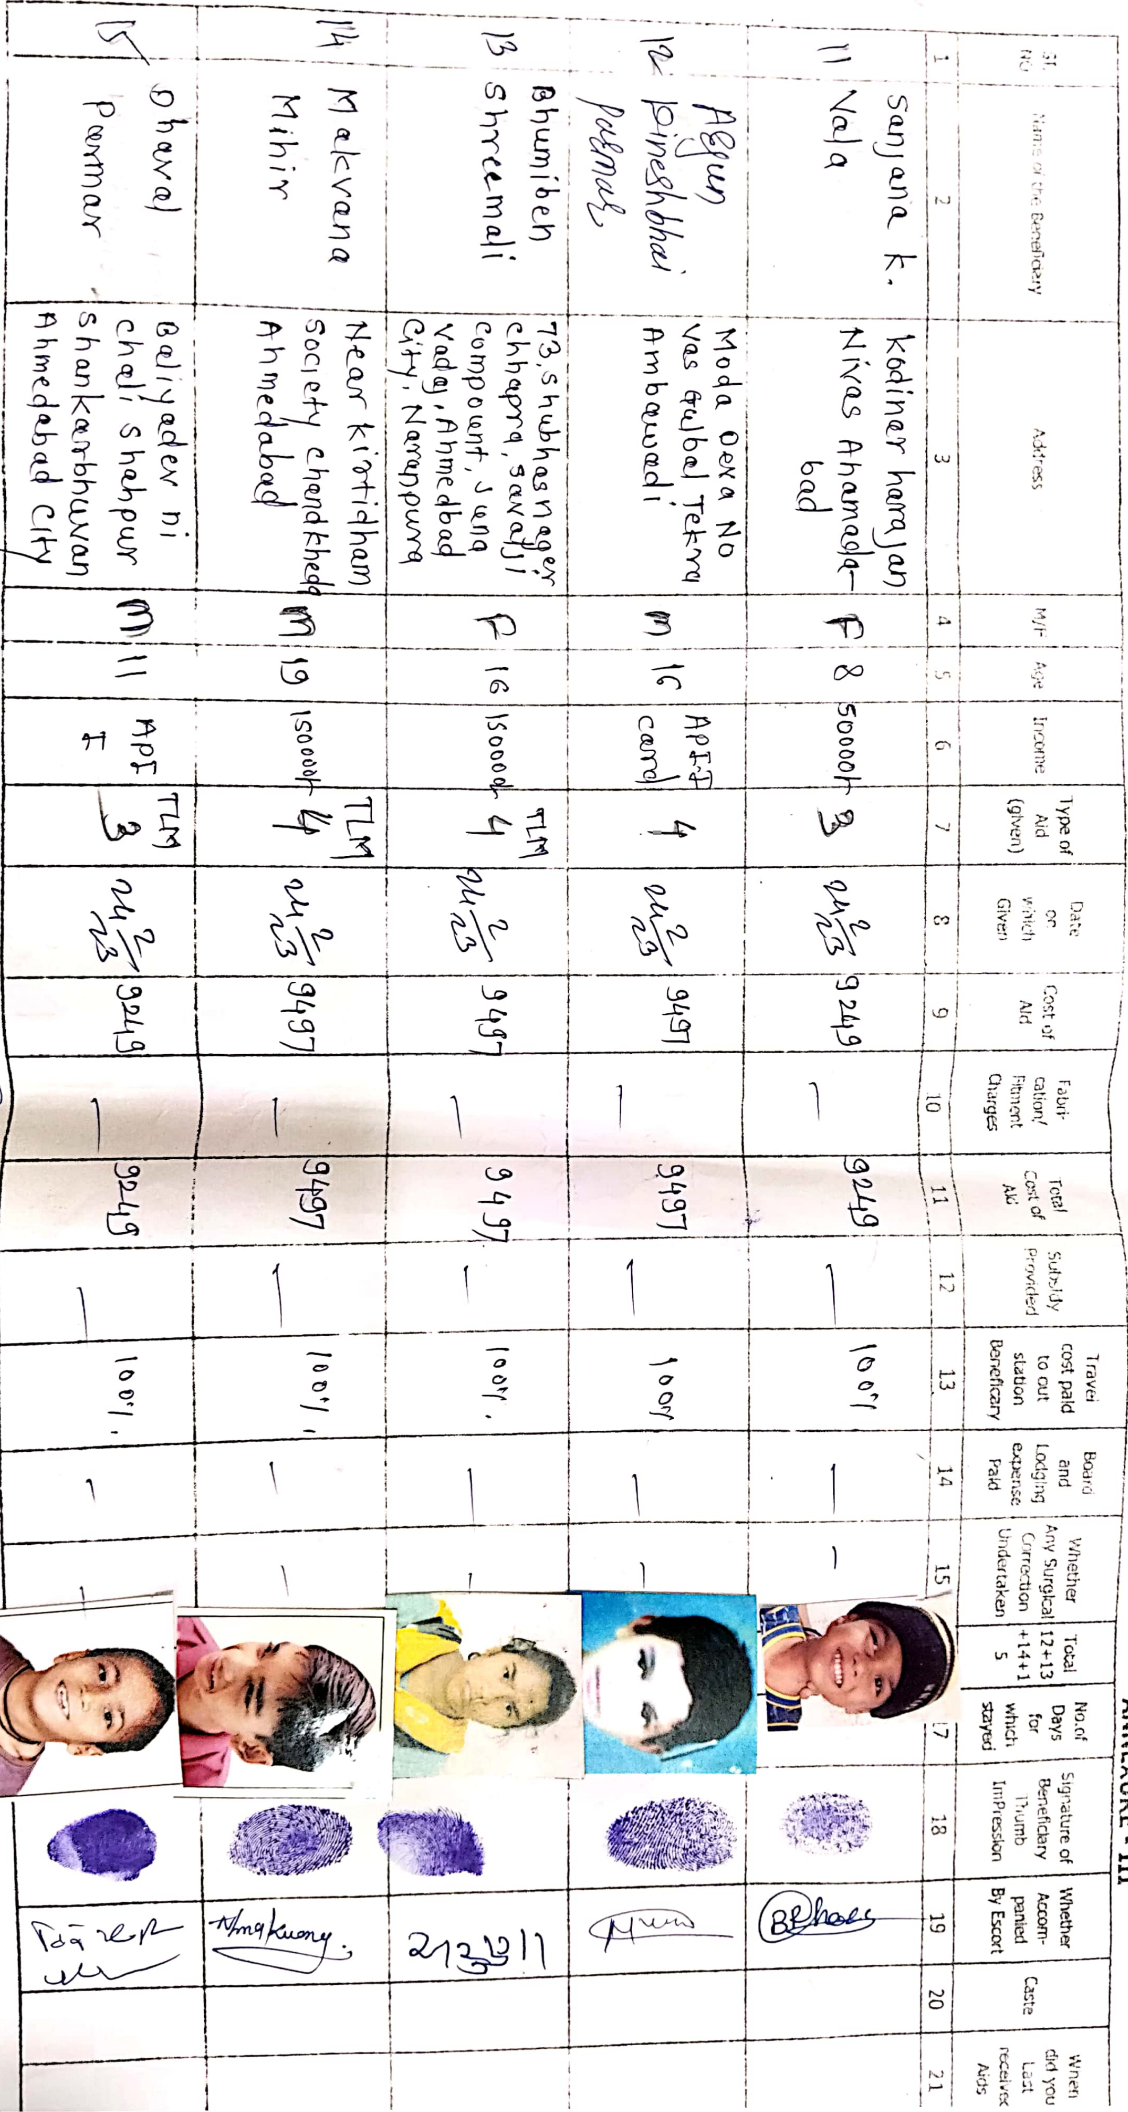 ANNEXURE - III
Sr. No
Name of the Beneficiary
Address
M/F
Age
Income
Type of Aid (given)
Date on which Given
Cost of Aid
Fabrication/ Fitment Charges
Total Cost of Aid
Subsidy Provided
Travel cost paid to out station Beneficary
Board and Lodging expense Paid
Whether Any Surgical Correction Undertaken
Total 12+13 +14+1 5
No.of Days for which stayed
Signature of Beneficiary Thumb ImPression
Whether Accom- panied By Escort
Caste
When did you Last receivec Aids
1 2 3 4 5 6 7 8 9 10 11 12 13 14 15 17 18 19 20 21
11 Sanjana K. Vala
Kodinar harajan
Nivas Ahamada-
bad
F 8 50000/- 3 24/2/23 9249 — 9249 — 100% — —
12 Arjun Dineshbhai Parmar
Moda Dera No
Vas Gulbai Tekra
Ambawadi
m 16 APL-I card 4 24/2/23 9497 — 9497 — 100% — —
13 Bhumiben Shreemali
73, Shubhasnager
chhapra, savajji
compount, Juna
Vadaj, Ahmedbad
City, Naranpura
F 16 15000/- TLM 4 24/2/23 9497 — 9497 — 100%. — —
14 Makvana Mihir
Near kirtidham
Society chandkheda
Ahmedabad
m 19 15000/- TLM 4 24/2/23 9497 — 9497 — 100%. — —
15 Dhaval Parmar
Baliyadev ni
chali Shahpur
Shankarbhuvan
Ahmedabad City
m 11 APL I TLM 3 24/2/23 9249 — 9249 — 100%. — —